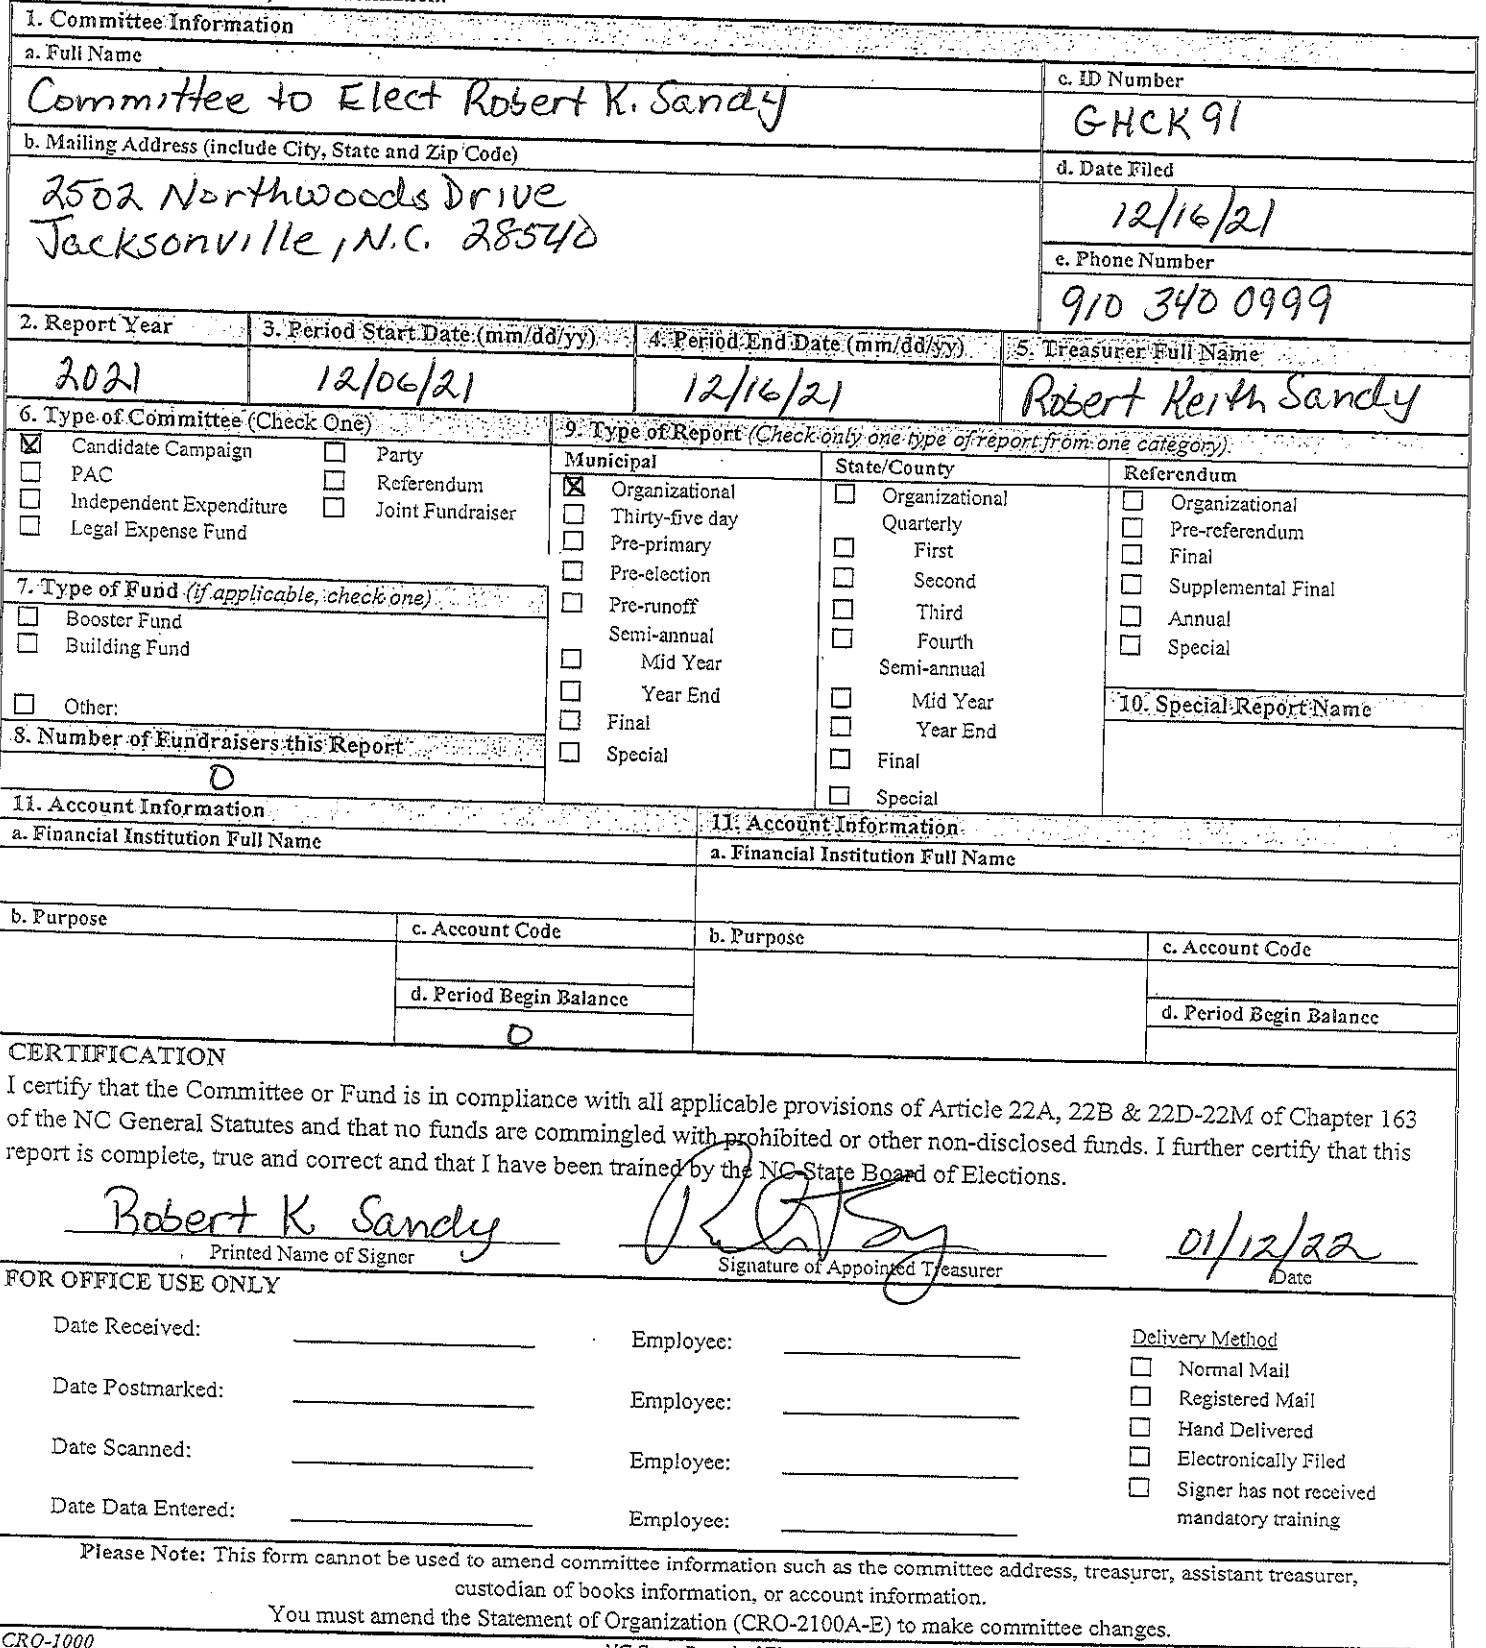 1. Committee Information
a. Full Name
Committee to Elect Robert K. Sandy
c. ID Number
GHCK91
b. Mailing Address (include City, State and Zip Code)
2502 Northwoods Drive
Jacksonville, N.C. 28540
d. Date Filed
12/16/21
e. Phone Number
910 340 0999
2. Report Year
2021
3. Period Start Date (mm/dd/yy)
12/06/21
4. Period End Date (mm/dd/yy)
12/16/21
5. Treasurer Full Name
Robert Keith Sandy
6. Type of Committee (Check One)
Candidate Campaign
PAC
Independent Expenditure
Legal Expense Fund
Party
Referendum
Joint Fundraiser
7. Type of Fund (if applicable, check one)
Booster Fund
Building Fund
Other:
8. Number of Fundraisers this Report
0
9. Type of Report (Check only one type of report from one category).
Municipal
Organizational
Thirty-five day
Pre-primary
Pre-election
Pre-runoff
Semi-annual
Mid Year
Year End
Final
Special
State/County
Organizational
Quarterly
First
Second
Third
Fourth
Semi-annual
Mid Year
Year End
Final
Special
Referendum
Organizational
Pre-referendum
Final
Supplemental Final
Annual
Special
10. Special Report Name
11. Account Information
a. Financial Institution Full Name
b. Purpose
c. Account Code
d. Period Begin Balance
0
11. Account Information
a. Financial Institution Full Name
b. Purpose
c. Account Code
d. Period Begin Balance
CERTIFICATION
I certify that the Committee or Fund is in compliance with all applicable provisions of Article 22A, 22B & 22D-22M of Chapter 163
of the NC General Statutes and that no funds are commingled with prohibited or other non-disclosed funds. I further certify that this
report is complete, true and correct and that I have been trained by the NC State Board of Elections.
Robert K Sandy
Printed Name of Signer
Signature of Appointed Treasurer
01/12/22
Date
FOR OFFICE USE ONLY
Date Received:
Employee:
Date Postmarked:
Employee:
Date Scanned:
Employee:
Date Data Entered:
Employee:
Delivery Method
Normal Mail
Registered Mail
Hand Delivered
Electronically Filed
Signer has not received
mandatory training
Please Note: This form cannot be used to amend committee information such as the committee address, treasurer, assistant treasurer,
custodian of books information, or account information.
You must amend the Statement of Organization (CRO-2100A-E) to make committee changes.
CRO-1000